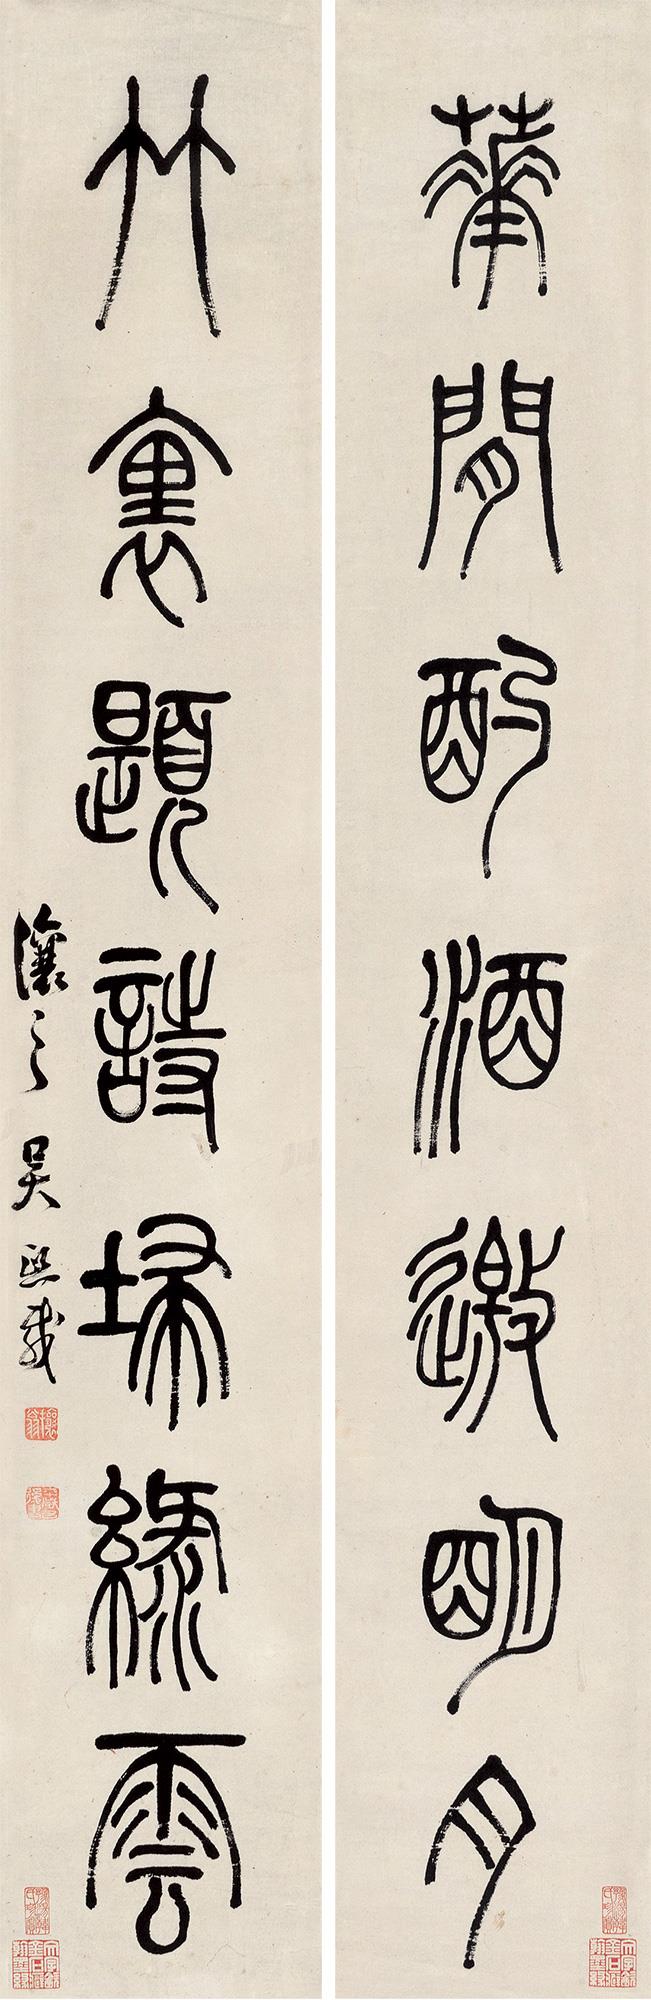 華閒酌酒邀明月
竹裏題詩掃綠雲
讓之吳熙載